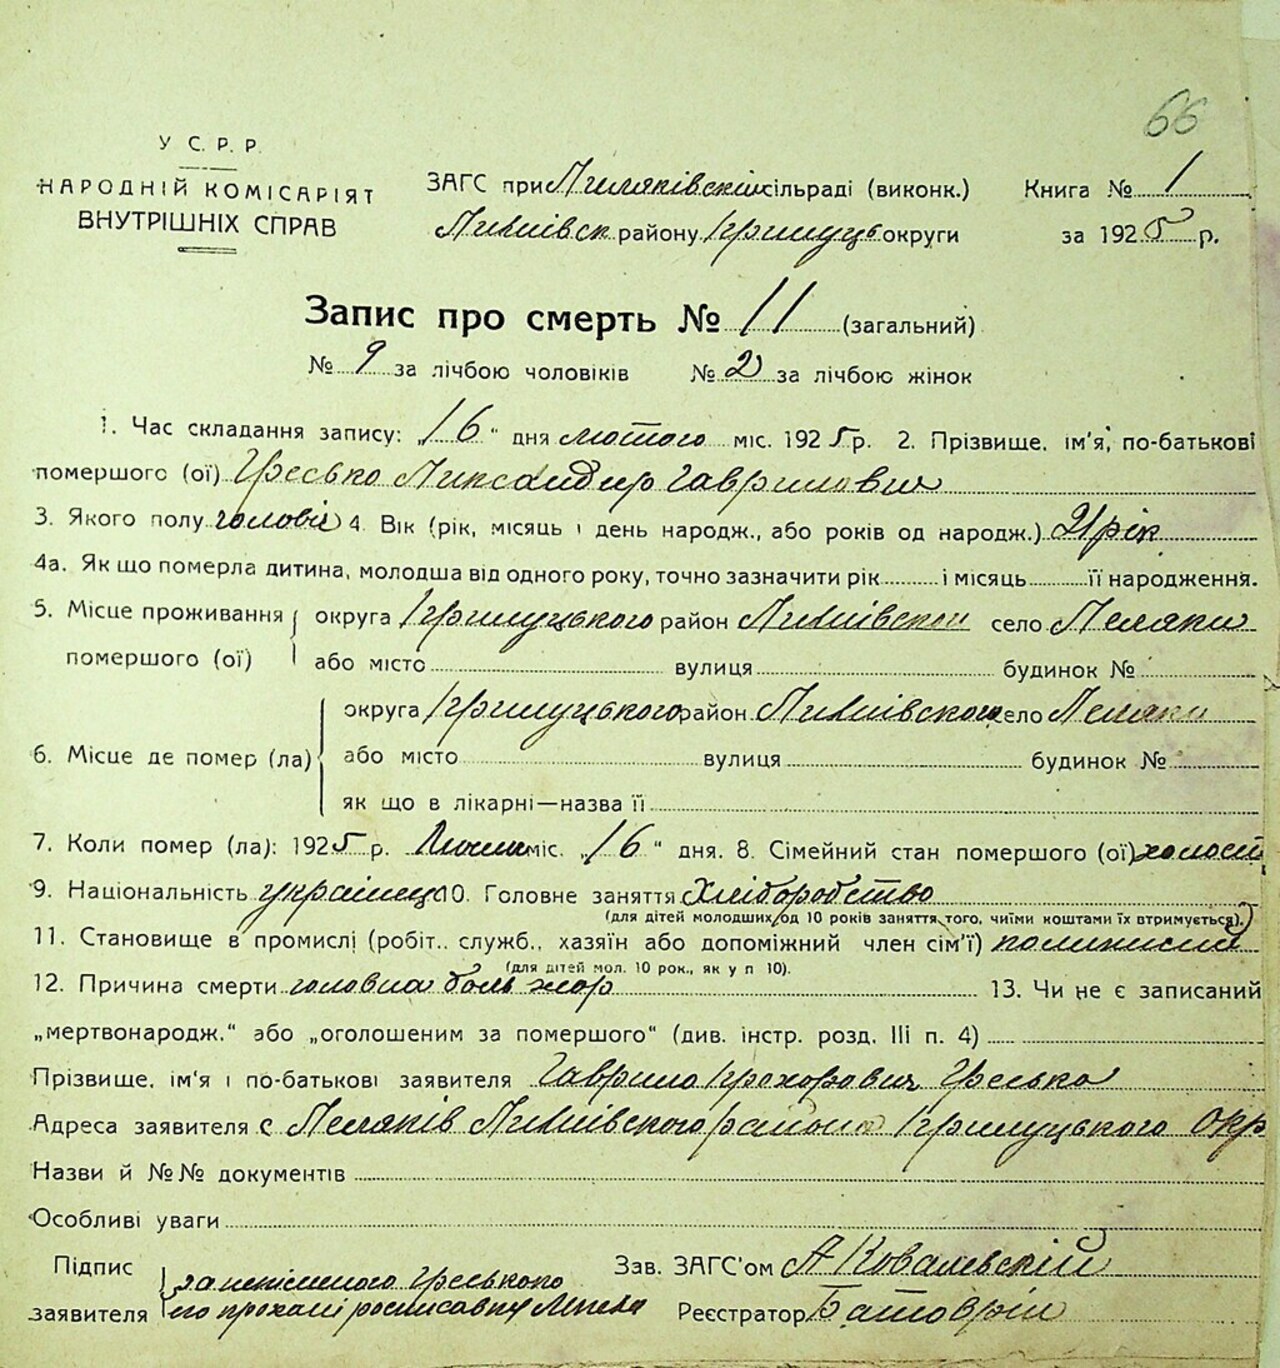 66
У С. Р. Р.
НАРОДНІЙ КОМІСАРІЯТ
ВНУТРІШНІХ СПРАВ
ЗАГС при сільраді (виконк.)
району Прилуць округи
Книга № 1
за 1925 р.
Запис про смерть № 11 (загальний)
№ 9 за лічбою чоловіків № 2 за лічбою жінок
1. Час складання запису: „16“ дня лютого міс. 1925 р. 2. Прізвище, ім'я, по-батькові
помершого (ої) Гресько Гаврилович
3. Якого полу 4. Вік (рік, місяць і день народж., або років од народж.) 21 рік
4а. Як що померла дитина, молодша від одного року, точно зазначити рік і місяць її народження.
5. Місце проживання помершого (ої) округа Прилуцького район село Пеляки
або місто вулиця будинок №
6. Місце де помер (ла) округа Прилуцького район село Пеляки
або місто вулиця будинок №
як що в лікарні—назва її
7. Коли помер (ла): 1925 р. міс. „16“ дня. 8. Сімейний стан помершого (ої) холост
9. Національність українець 10. Головне заняття Хліборобство
(для дітей молодших од 10 років заняття того, чиїми коштами їх втримується).
11. Становище в промислі (робіт., служб., хазяїн або допоміжний член сім'ї)
(для дітей мол. 10 рок., як у п 10).
12. Причина смерти головна боль 13. Чи не є записаний
„мертвонародж.“ або „оголошеним за помершого“ (див. інстр. розд. III п. 4)
Прізвище, ім'я і по-батькові заявителя Гаврило Прохорович Гресько
Адреса заявителя с Пеляків района Прилуцького Окр
Назви й №№ документів
Особливі уваги
Підпис заявителя за Греського
его
Зав. ЗАГС'ом А Ковалевский
Реєстратор